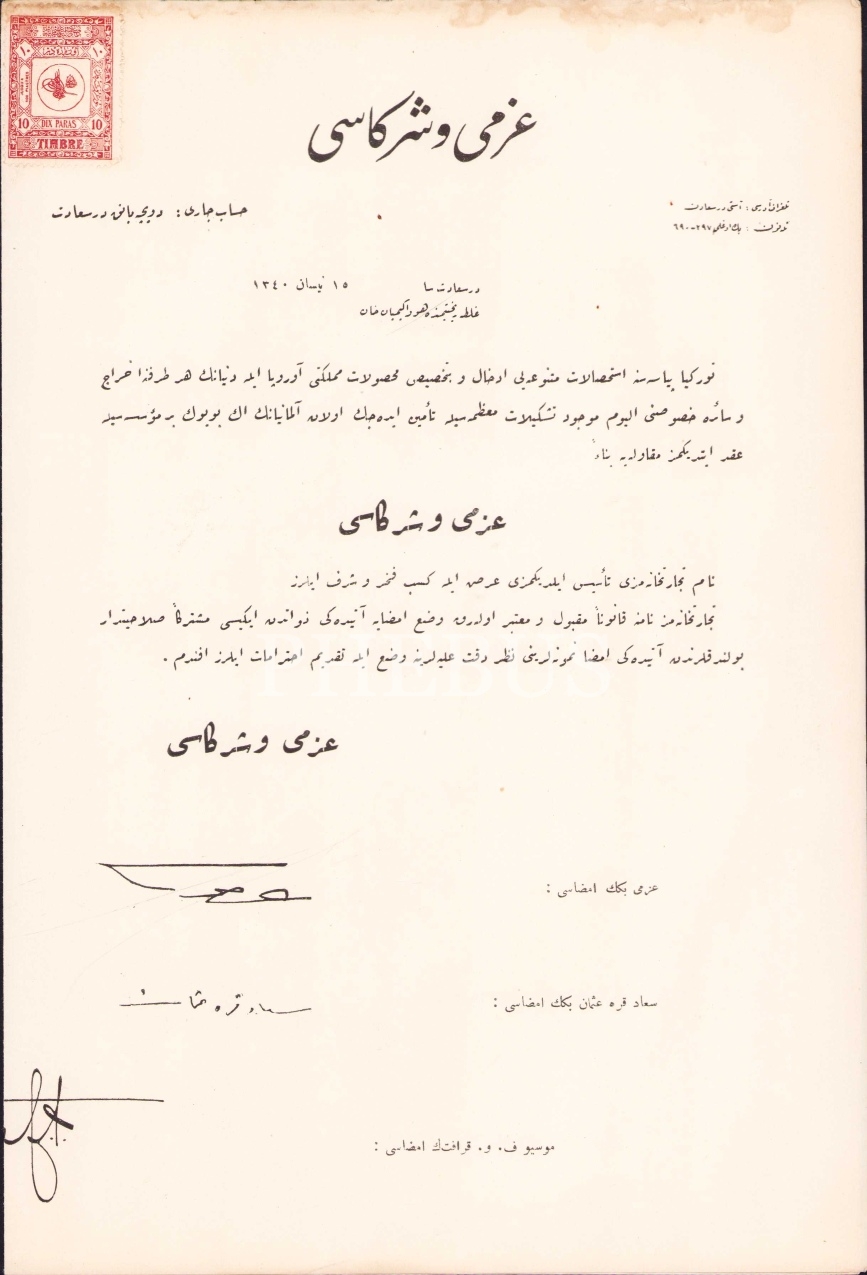 ١٠ ١٠
10 DIX PARAS 10
TIMBRE
عزمی و شركاسی
تلغراف آدرسی : آسقی درسعادت
تلفون : بك اوغلی ٢٩٧-٦٩٠
حساب جاری : دویچه بانق درسعادت
درسعادت ١٥ نیسان ١٣٤٠
غلطه ده خان
توركیا پیاسه سنه استحصالات متنوعه یی ادخال و بتخصیص محصولات مملكتی آوروپا ایله دنیانك هر طرفنه اخراج
و سائره خصوصنی الیوم موجود تشكیلات معظمه سیله تأمین ایده جك اولان آلمانیانك اك بویوك بر مؤسسه سیله
عقد ایتدیكمز مقاوله یه بناءً
عزمی و شركاسی
نام تجارتخانه مزی تأسیس ایلدیكمزی عرض ایله كسب فخر و شرف ایلرز
تجارتخانه مز نامنه قانوناً مقبول و معتبر اوله رق وضع امضایه آتیده كی ذواتدن ایكیسی مشتركاً صلاحیتدار
بولندقلرندن آتیده كی امضا نمونه لرینی نظر دقت علیه لرینه وضع ایله تقدیم احترامات ایلرز افندم .
عزمی و شركاسی
عزمی بكك امضاسی :
سعاد قره عثمان بكك امضاسی :
سعاد قره عثمان
موسیو ف . و . قرافتك امضاسی :
PHEBUS